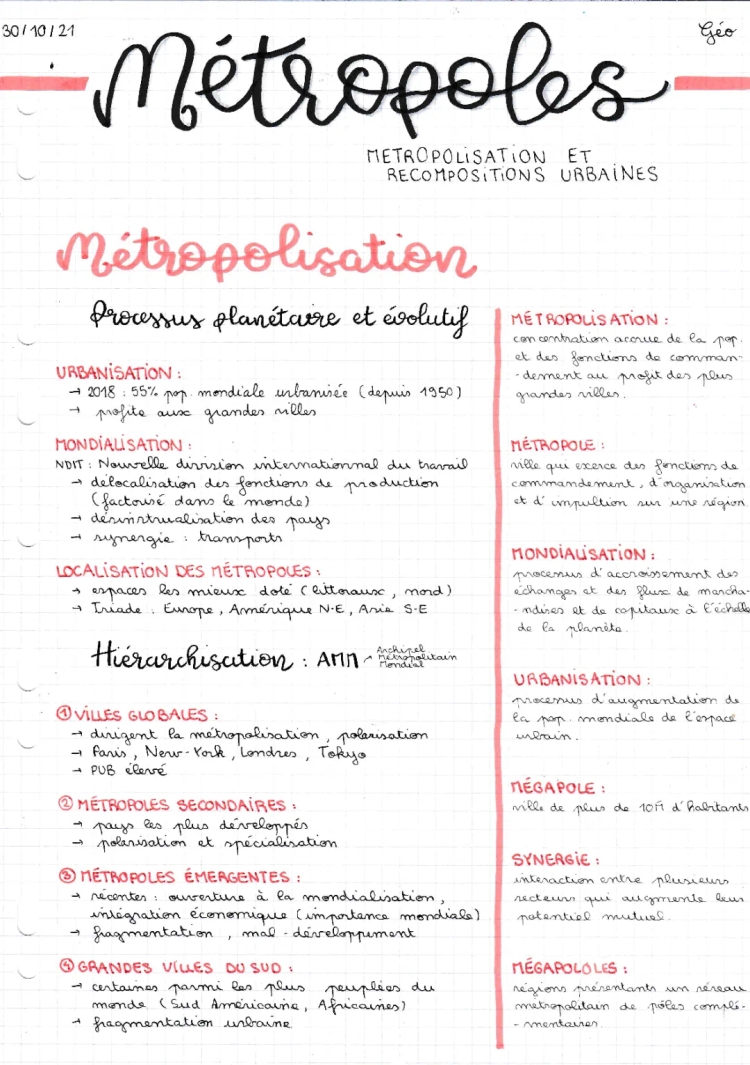 30/10/21
Géo
Métropoles
METROPOLISATION ET
RECOMPOSITIONS URBAINES
Métropolisation
Processus planétaire et évolutif
URBANISATION :
→ 2018 : 55% pop. mondiale urbanisée (depuis 1950)
→ profite aux grandes villes
MONDIALISATION :
NDIT : Nouvelle division internationnal du travail
→ délocalisation des fonctions de production
(factorisé dans le monde)
→ désinstrualisation des pays
→ synergie : transports
LOCALISATION DES MÉTROPOLES :
→ espaces les mieux doté (littoraux, nord)
→ Triade : Europe, Amérique N-E, Asie S-E
Hiérarchisation : AMM → Archipel
Métropolitain
Mondial
① VILLES GLOBALES :
→ dirigent la métropolisation, polarisation
→ Paris, New-York, Londres, Tokyo
→ PUB élevé
② MÉTROPOLES SECONDAIRES :
→ pays les plus développés
→ polarisation et spécialisation
③ MÉTROPOLES ÉMERGENTES :
→ récentes : ouverture à la mondialisation,
intégration économique (importance mondiale)
→ fragmentation, mal-développement
④ GRANDES VILLES DU SUD :
→ certaines parmi les plus peuplées du
monde (Sud Américaine, Africaines)
→ fragmentation urbaine
MÉTROPOLISATION :
concentration accrue de la pop.
et des fonctions de comman-
-dement au profit des plus
grandes villes.
MÉTROPOLE :
ville qui exerce des fonctions de
commandement, d'organisation
et d'impultion sur une région
MONDIALISATION :
processus d'accroissement des
échanges et des flux de marcha-
-ndises et de capitaux à l'échelle
de la planète.
URBANISATION :
processus d'augmentation de
la pop. mondiale de l'espace
urbain.
MÉGAPOLE :
ville de plus de 10M d'habitants
SYNERGIE :
interaction entre plusieurs
secteurs qui augmente leur
potentiel mutuel.
MÉGAPOLOLES :
régions présentants un réseau
metropolitain de pôles complé-
-mentaires.